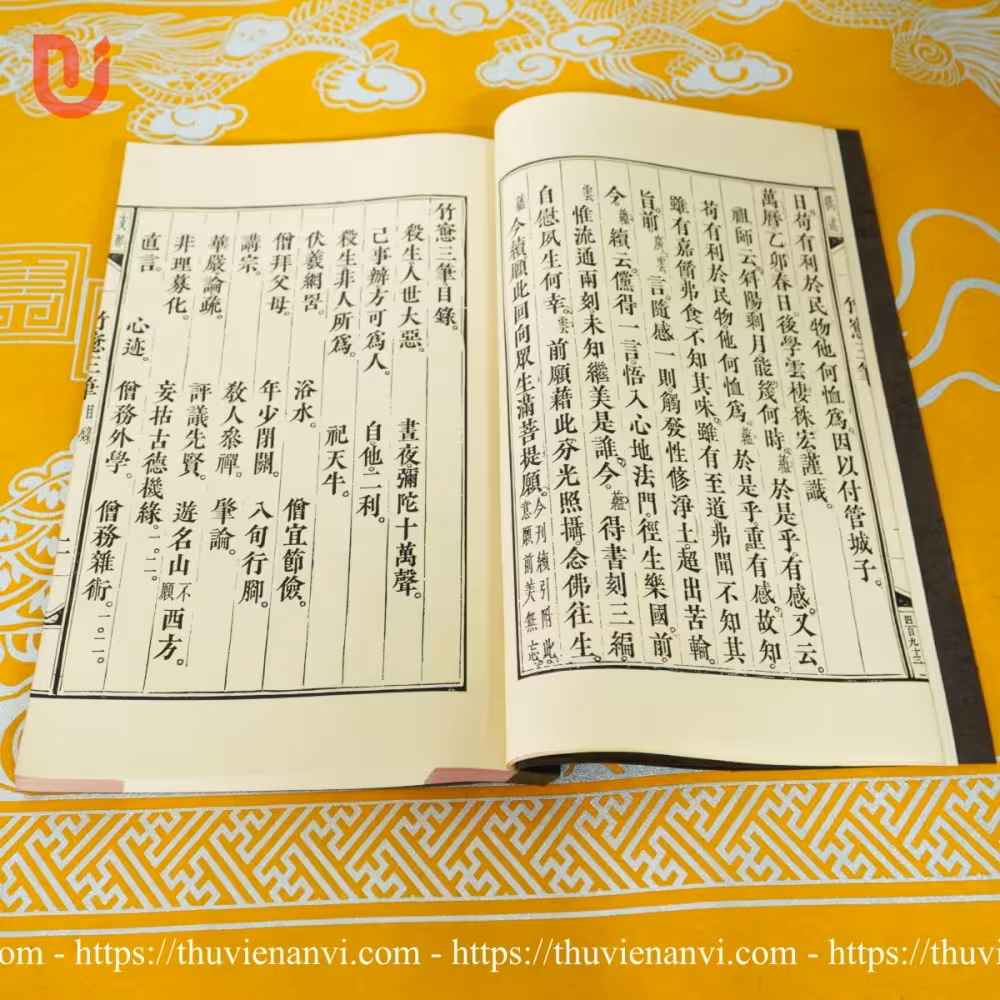 日苟有利於民物他何恤爲。因以付管城子。
萬曆乙卯春日後學雲棲袾宏謹識。
祖師云。斜陽剩月能幾何時。蘊於是乎。有感。又云。
苟有利於民物他何恤爲。蘊於是乎重有感。故知
雖有嘉餚弗食不知其味。雖有至道弗聞不知其
旨。前廣雲言。隨感一則觸發性修淨土。超出苦輪。
今蘊續云。儻得一言。悟入心地法門。徑生樂國。前
雲惟流通兩刻。未知繼美是誰。今蘊得書刻三編。
自慰夙生何幸。雲前願藉此芬光照攝。念佛往生。
蘊今續願此回向眾生滿菩提願。今刊續引附此。意願前美無忘。
四百九十三
竹窻三筆目錄。
殺生人世大惡。 晝夜彌陀十萬聲。
己事辦方可爲人。 自他二利。
殺生非人所爲。 祀天牛。
伏羲網罟。 浴水。 僧宜節儉。
僧拜父母。 年少閉關。 八旬行腳。
講宗。 教人叅禪。 肇論。
華嚴論疏。 評議先賢。 遊名山不願西方。
非理募化。 妄拈古德機緣。一。二。
直言。 心迹。 僧務外學。 僧務雜術。一。二。
竹窻三筆 目錄 一
https://thuvienanvi.com - https://thuvienanvi.com